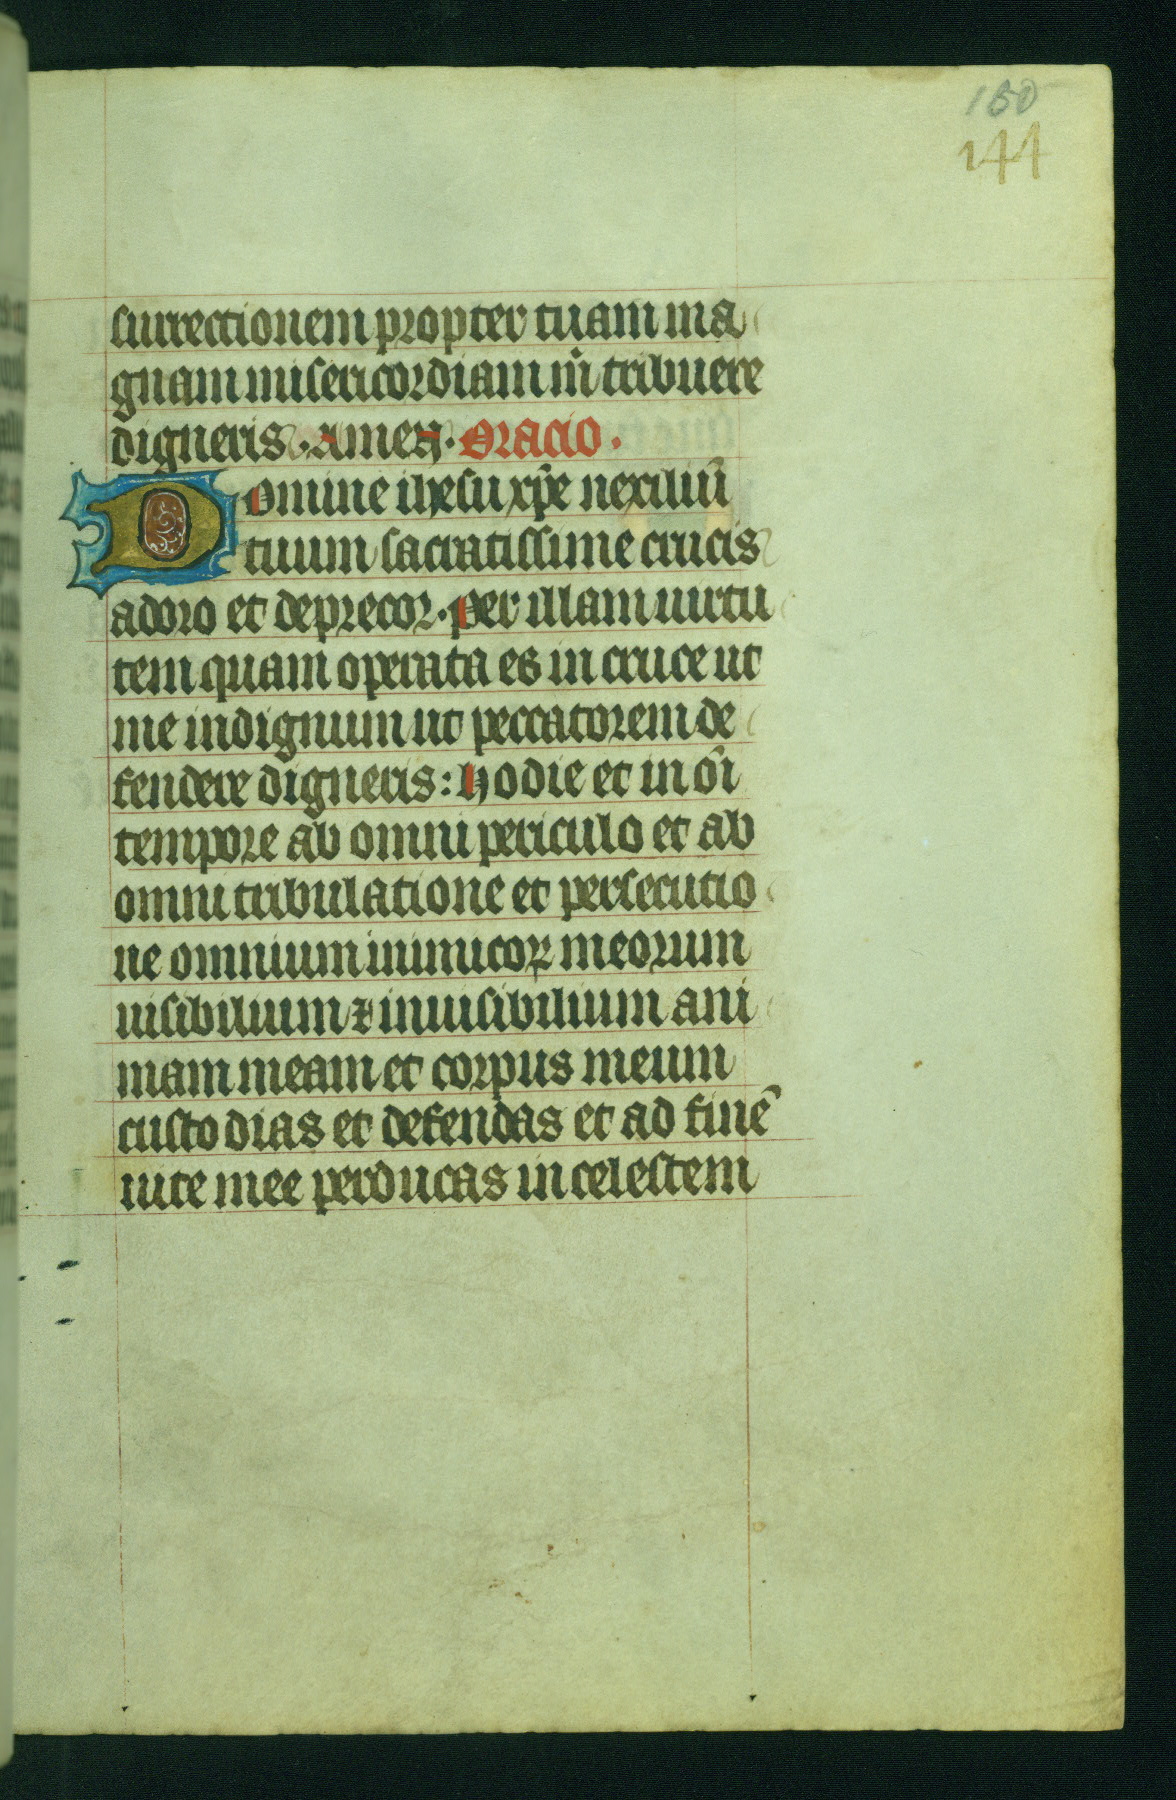 150
144
surrectionem propter tuam ma
gnam misericordiam m̄ tribuere
digneris. Amen. Oracio.
Domine ihesu xp̄e uexillū
tuum sacratissime crucis
adoro et deprecor. Per illam uirtu
tem quam operata es in cruce ut
me indignum ut peccatorem de
fendere digneris: Hodie et in oī
tempore ab omni periculo et ab
omni tribulatione et persecutio
ne omnium inimicoꝝ meorum
uisibilium ⁊ inuisibilium ani
mam meam et corpus meum
custodias et defendas et ad finē
uite mee perducas in celestem